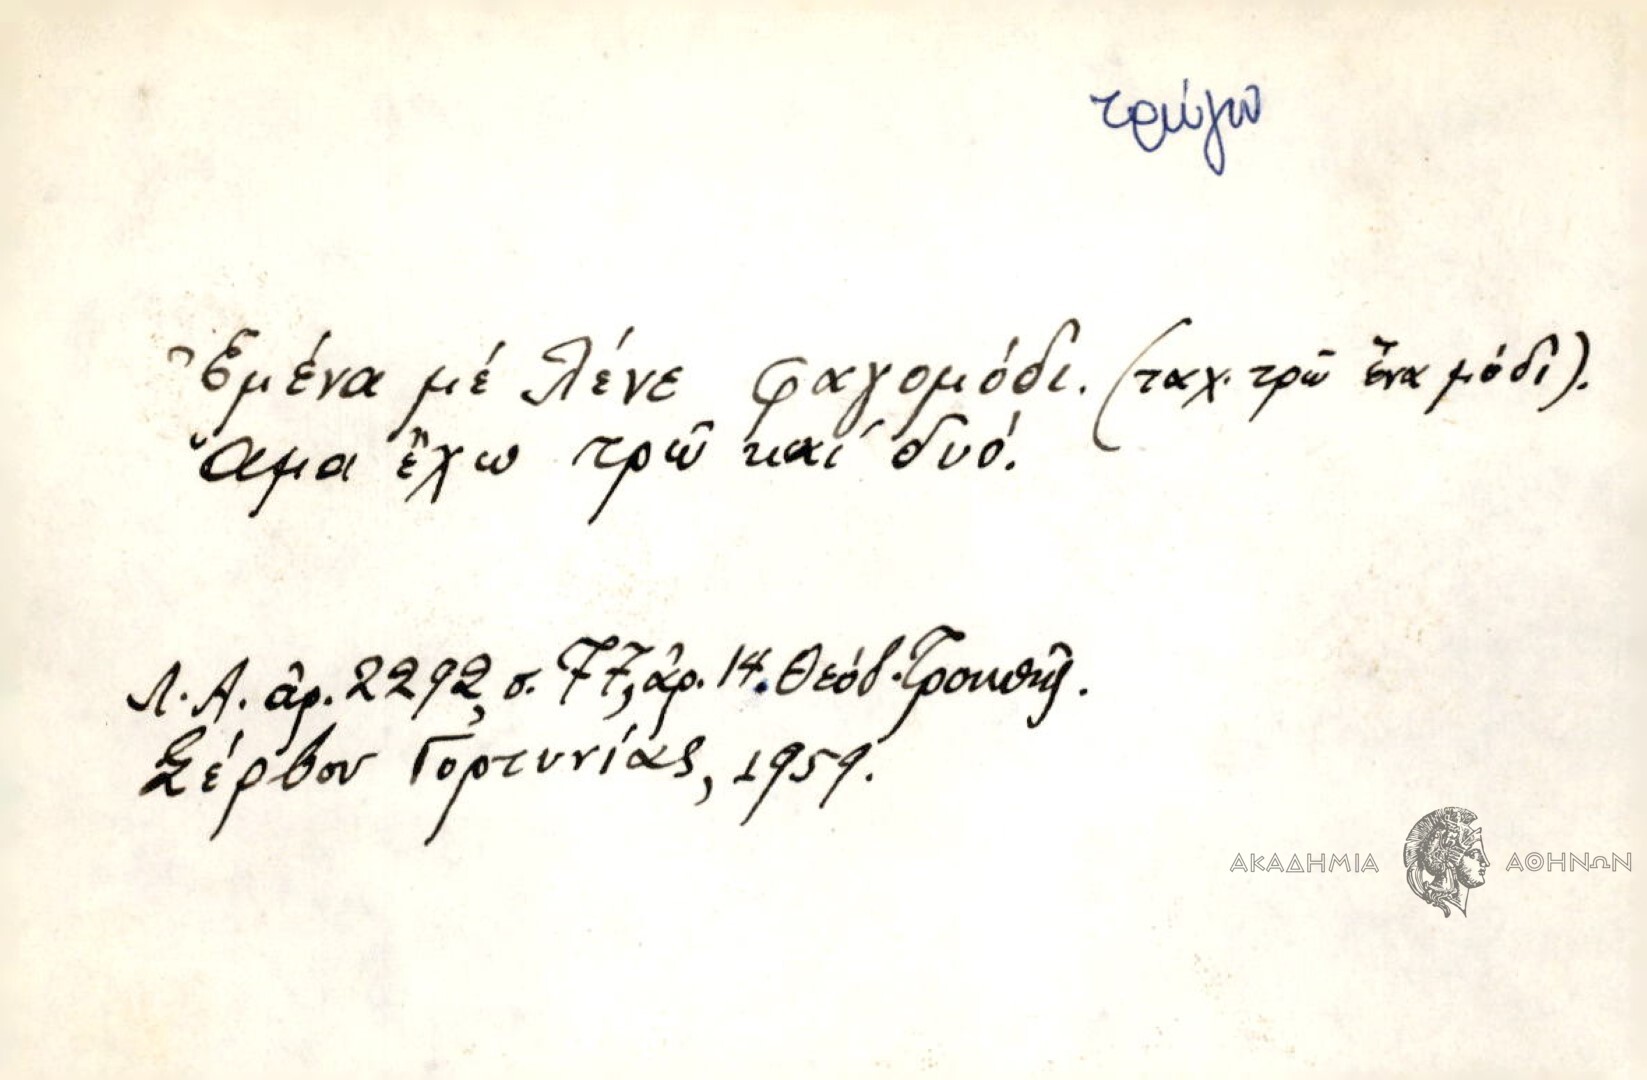 τρώγω
Ἐμένα μέ λένε φαγομόδι. (ταχ. τρῶ ἕνα μόδι).
Ἅμα ἔχω τρῶ καί δυό.
Λ.Α. ἀρ. 2292, σ. 77, ἀρ. 14. Θεόδ. Τρουπῆς.
Σέρβου Γορτυνίας, 1959.
ΑΚΑΔΗΜΙΑ ΑΘΗΝΩΝ